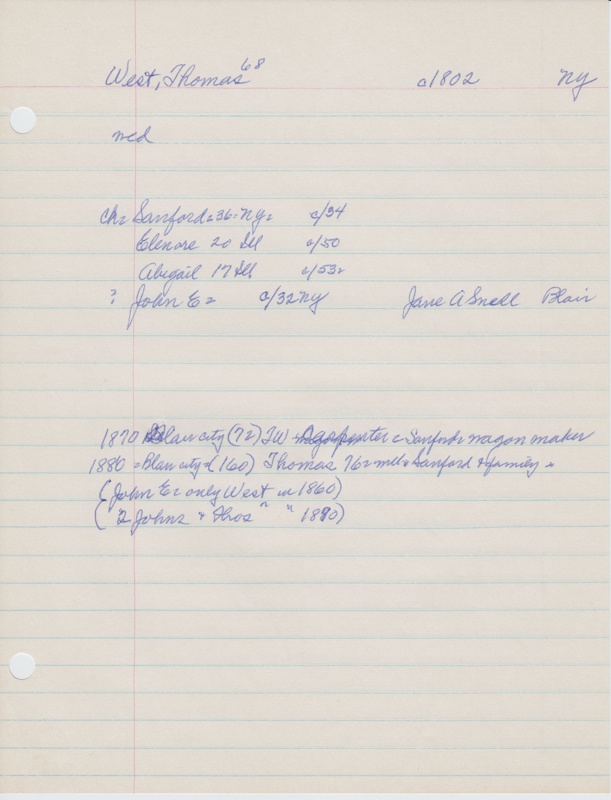 West, Thomas "68 c1802 NY
md
ch= Sanford=36=NY= c/34
Elenore 20 Ill c/50
Abigail 17 Ill. c/53=
? John E= c/32 NY Jane A Snell Blair
1870 Blair city (72) TW = carpenter c Sanford= wagon maker
1880 = Blair city = (160) Thomas 76= Sanford & family =
(John E= only West in 1860)
("2 Johns & Thos " " 1870)